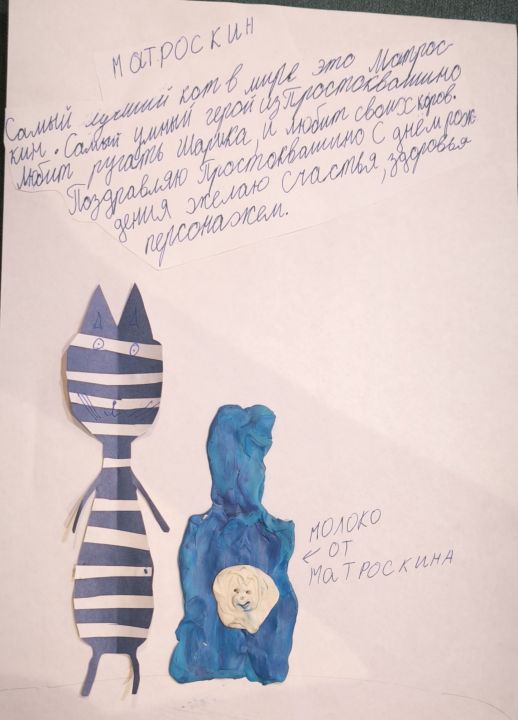 МАТРОСКИН
Самый лучший кот в мире это Матрос-
кин. Самый умный герой из Простоквашино
Любит ругать Шарика, и любит своих коров.
Поздравляю Простоквашино с днём рож-
дения желаю счастья, здоровья
персонажем.
МОЛОКО
ОТ
МАТРОСКИНА